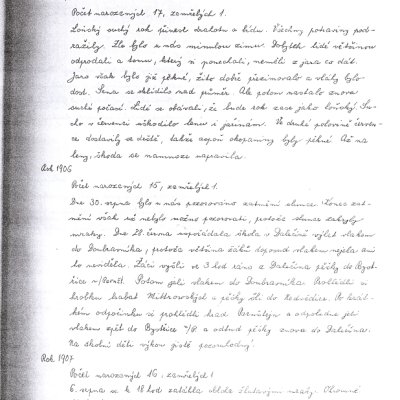 Počet narozených 17, zemřelých 1.
Loňský suchý rok přinesl drahotu a bídu. Všechny potraviny pod-
ražily. Zlo bylo u nás minulou zimu. Dobytek lidé většinou
odprodali a tomu, který si ponechali, neměli z jara co dát.
Jaro však bylo již pěkné, žito dobře přezimovalo a vláhy bylo
dost. Sena se sklidilo nad průměr. Ale potom nastalo znova
suché počasí. Lidé se obávali, že bude rok zase jako loňský. Su-
cho v červenci uškodilo lenu i jařinám. Ve druhé polovině červen-
ce dostavily se deště, takže aspoň okopaniny byly pěkné. Až na
leny, škoda se namnoze napravila.
Rok 1906
Počet narozených 15, zemřelých 1.
Dne 30. srpna bylo u nás pozorováno zatmění slunce. Konec zat-
mění však už nebylo možno pozorovati, protože slunce zakryly
mraky. Dne 28. června uspořádala škola z Dalečína výlet vlakem
do Doubravníka, protože většina žáků doposud vlakem nejela ani
ho neviděla. Žáci vyšli ve 3 hod ráno z Dalečína pěšky do Byst-
řice n/Pernšt. Potom jeli vlakem do Doubravníka. Prohlédli si
hrobku hrabat Mitrovských a pěšky šli do Nedvědice. Po krát-
kém odpočinku si prohlédli hrad Pernštejn a odpoledne jeli
vlakem zpět do Bystřice n/P a odtud pěšky znova do Dalečína.
Na školní děti výkon jistě pozoruhodný.
Rok 1907
Počet narozených 16, zemřelých 1
6. srpna se k 18 hod zatáhla obloha mraky. Ohromné